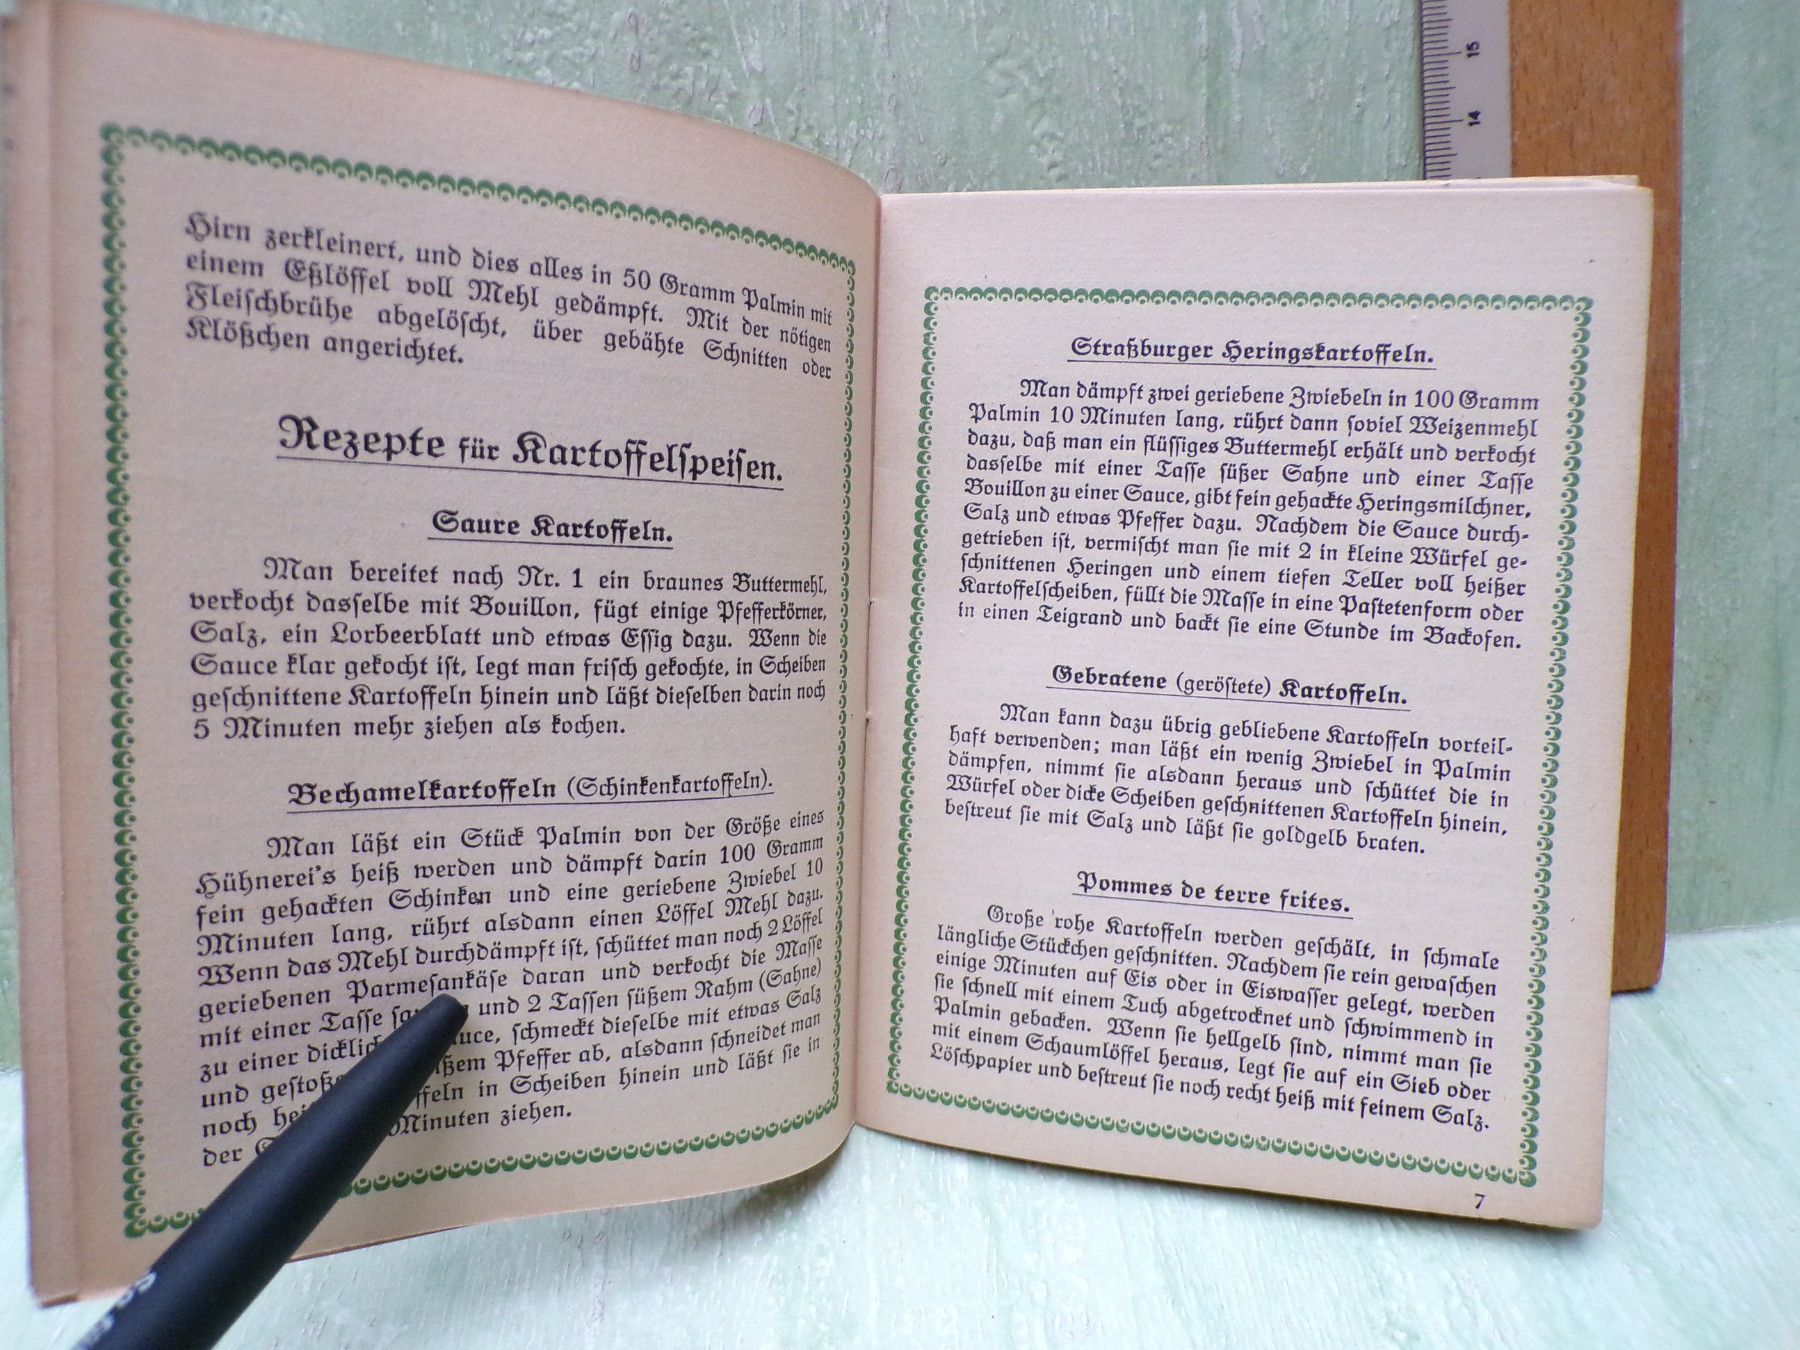 Hirn zerkleinert, und dies alles in 50 Gramm Palmin mit
einem Eßlöffel voll Mehl gedämpft. Mit der nötigen
Fleischbrühe abgelöscht, über gebähte Schnitten oder
Klößchen angerichtet.
Rezepte für Kartoffelspeisen.
Saure Kartoffeln.
Man bereitet nach Nr. 1 ein braunes Buttermehl,
verkocht dasselbe mit Bouillon, fügt einige Pfefferkörner,
Salz, ein Lorbeerblatt und etwas Essig dazu. Wenn die
Sauce klar gekocht ist, legt man frisch gekochte, in Scheiben
geschnittene Kartoffeln hinein und läßt dieselben darin noch
5 Minuten mehr ziehen als kochen.
Bechamelkartoffeln (Schinkenkartoffeln).
Man läßt ein Stück Palmin von der Größe eines
Hühnerei's heiß werden und dämpft darin 100 Gramm
fein gehackten Schinken und eine geriebene Zwiebel 10
Minuten lang, rührt alsdann einen Löffel Mehl dazu.
Wenn das Mehl durchdämpft ist, schüttet man noch 2 Löffel
geriebenen Parmesankäse daran und verkocht die Masse
mit einer Tasse und 2 Tassen süßem Rahm (Sahne)
zu einer schmeckt dieselbe mit etwas Salz
und Pfeffer ab, alsdann schneidet man
noch in Scheiben hinein und läßt sie in
der Minuten ziehen.
Straßburger Heringskartoffeln.
Man dämpft zwei geriebene Zwiebeln in 100 Gramm
Palmin 10 Minuten lang, rührt dann soviel Weizenmehl
dazu, daß man ein flüssiges Buttermehl erhält und verkocht
dasselbe mit einer Tasse süßer Sahne und einer Tasse
Bouillon zu einer Sauce, gibt fein gehackte Heringsmilchner,
Salz und etwas Pfeffer dazu. Nachdem die Sauce durch-
getrieben ist, vermischt man sie mit 2 in kleine Würfel ge-
schnittenen Heringen und einem tiefen Teller voll heißer
Kartoffelscheiben, füllt die Masse in eine Pastetenform oder
in einen Teigrand und backt sie eine Stunde im Backofen.
Gebratene (geröstete) Kartoffeln.
Man kann dazu übrig gebliebene Kartoffeln vorteil-
haft verwenden; man läßt ein wenig Zwiebel in Palmin
dämpfen, nimmt sie alsdann heraus und schüttet die in
Würfel oder dicke Scheiben geschnittenen Kartoffeln hinein,
bestreut sie mit Salz und läßt sie goldgelb braten.
Pommes de terre frites.
Große rohe Kartoffeln werden geschält, in schmale
längliche Stückchen geschnitten. Nachdem sie rein gewaschen
einige Minuten auf Eis oder in Eiswasser gelegt, werden
sie schnell mit einem Tuch abgetrocknet und schwimmend in
Palmin gebacken. Wenn sie hellgelb sind, nimmt man sie
mit einem Schaumlöffel heraus, legt sie auf ein Sieb oder
Löschpapier und bestreut sie noch recht heiß mit feinem Salz.
7
15
14